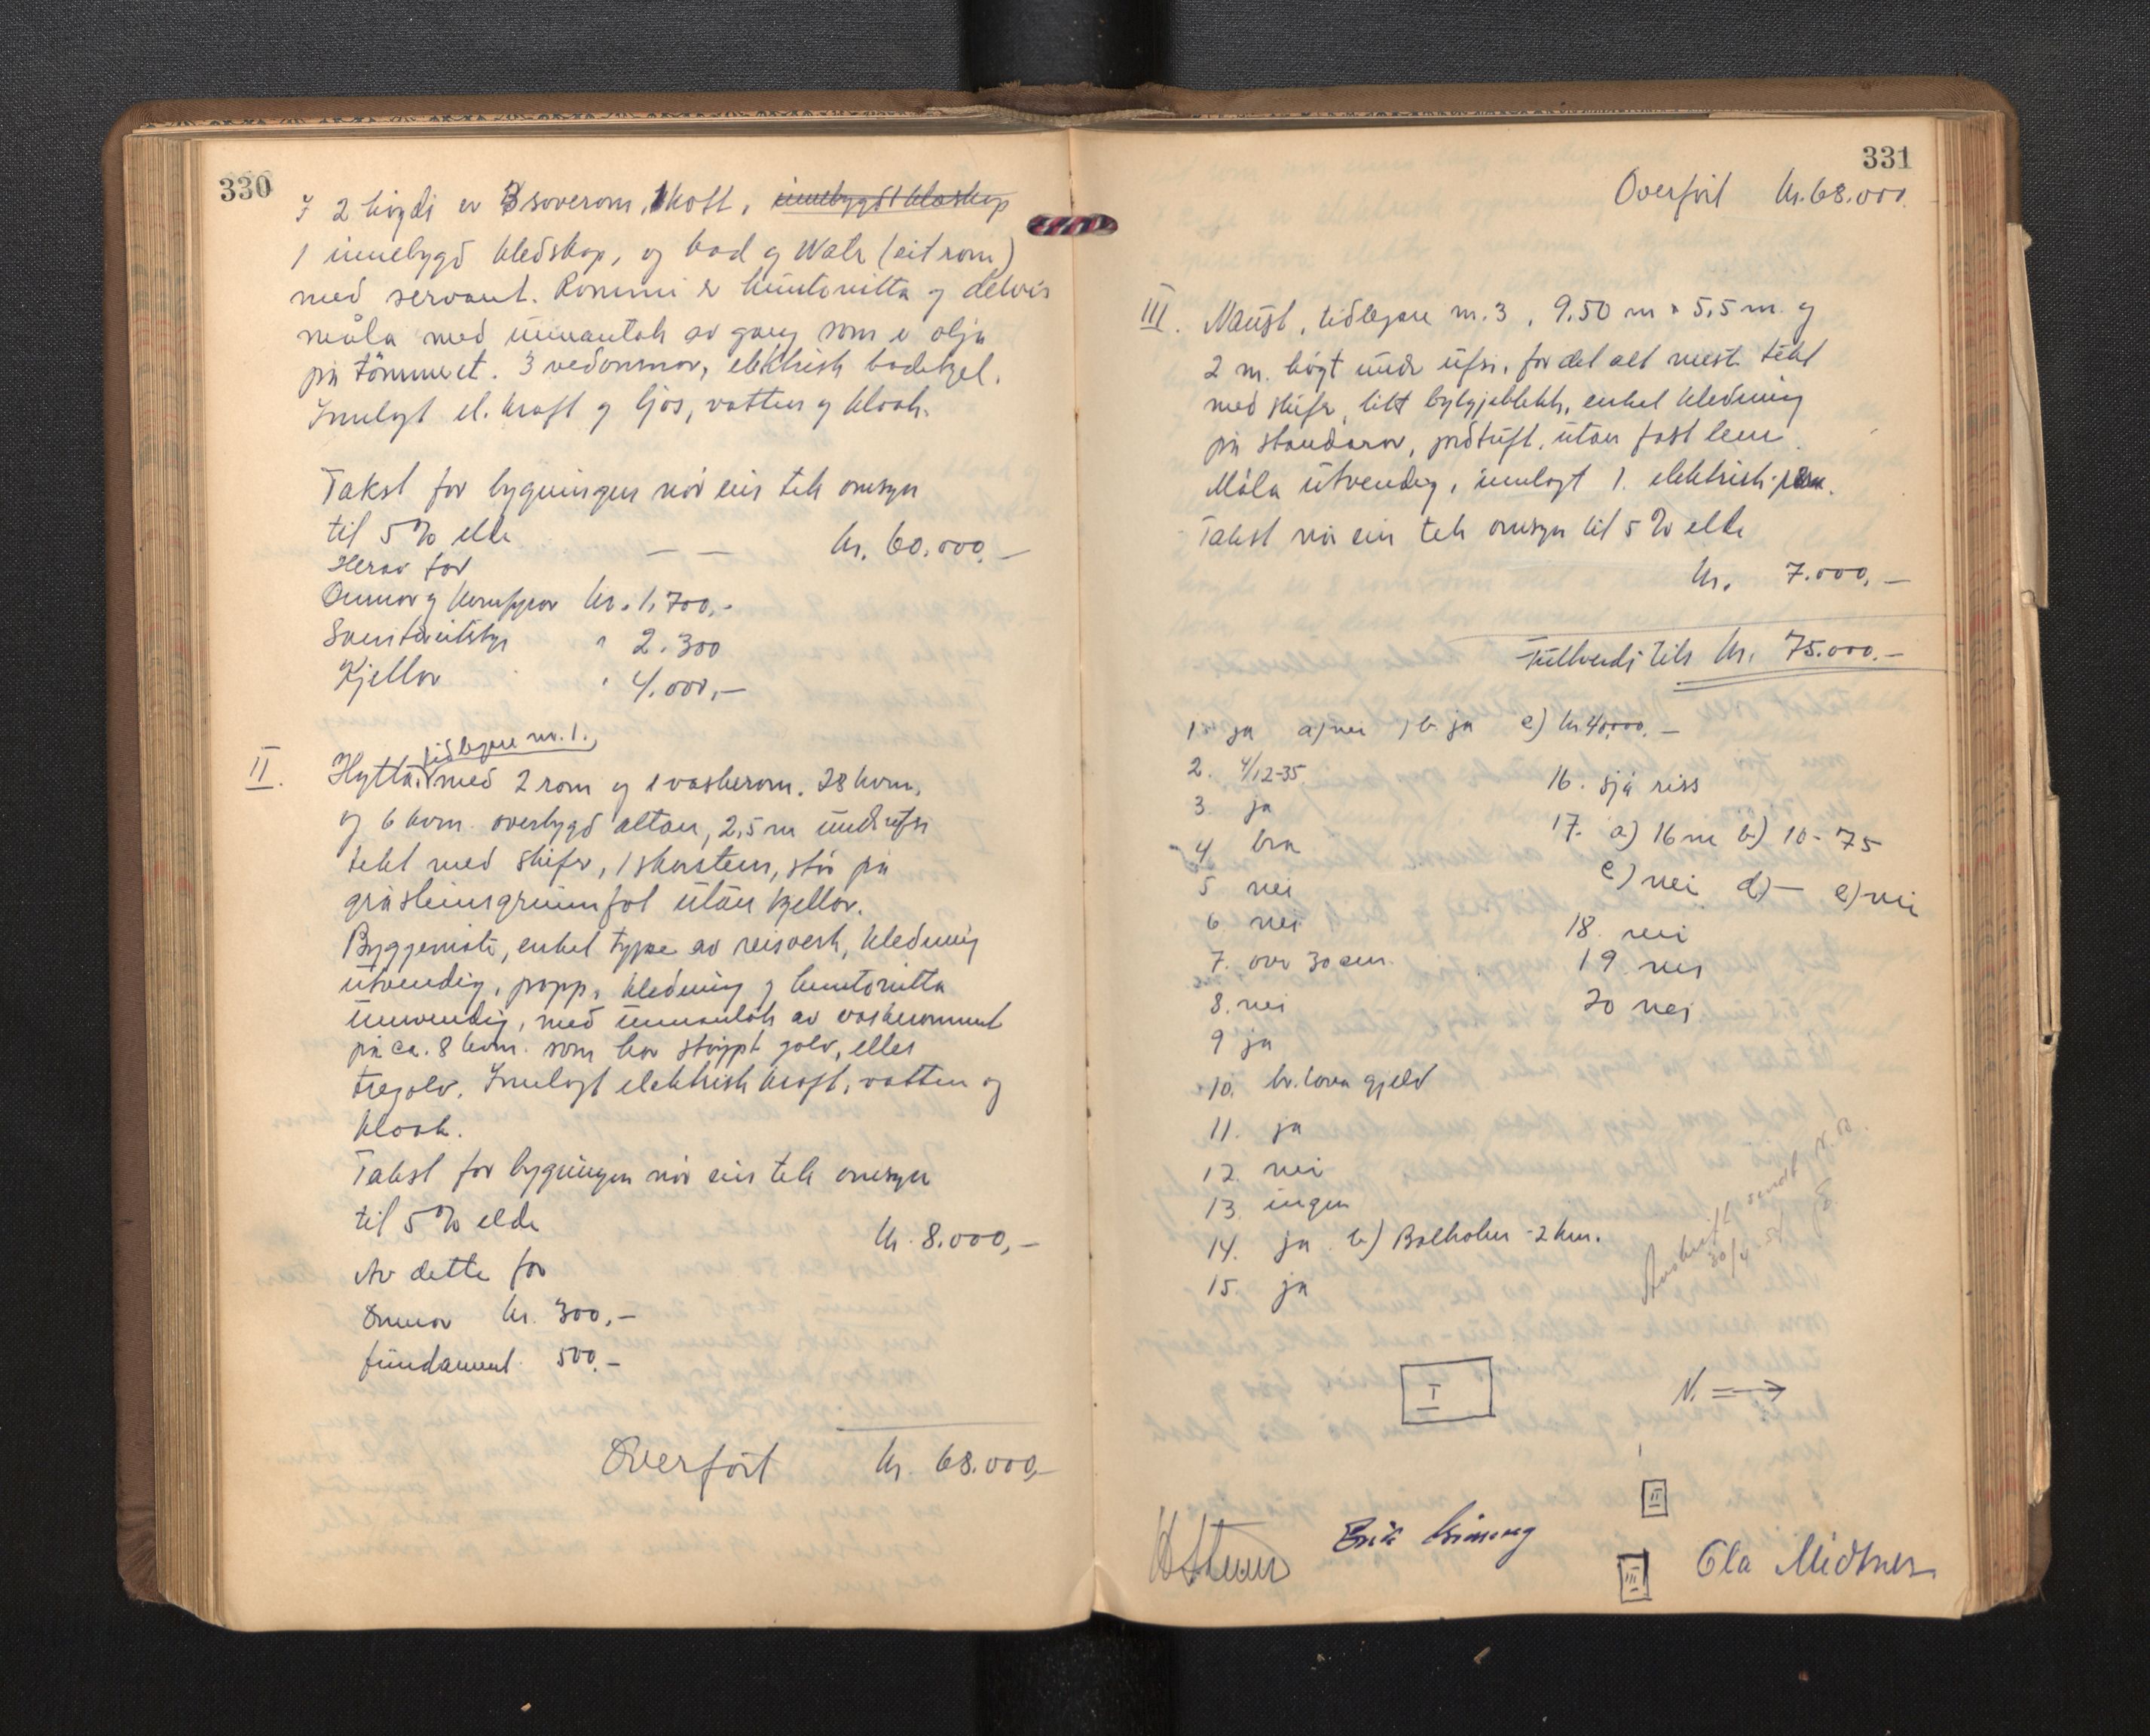 330
I 2 högdi er 3 soverom, 1 kott, innebygd kleskap
1 innebygd kledskap, og bad og Watr (eit rom)
med servant. Rommi er huntonitta og delvis
måla med unnantak av gang som er olja
på tömmeret. 3 vedomnar, elektrisk badekjel.
Innlagt el. kraft og ljos, vatten og kloak.
Takst for bygningen når ein tek omsyn
til 5% elde — — kr. 60.000,-
Herav for
Omnar og komfyrar kr. 1.700,-
Sanitærutstyr " 2.300
Kjellar " 4.000,-
tidlegare nr. 1.,
II. Hytta, med 2 rom og 1 vaskerom. 28 kvm.
og 6 kvm. overbygd altan, 2,5 m under ufsi
tekt med skifer, 1 skorstein, står på
gråsteinsgrunnfol utan kjellar.
Byggjemåte, enkel type av reisverk, kledning
utvendig, papp, kledning og huntonitta
innvendig, med unnantak av vaskerommet
på ca. 8 kvm. som har støypt golv, elles
tregolv. Innlagt elektrisk kraft, vatten og
kloak.
Takst for bygningen når ein tek omsyn
til 5% elde kr. 8.000,-
Av dette for
Omnar kr. 300,-
fundament 500,-
Överfört kr. 68.000,-
331
Överfört kr. 68.000.
III. Naust, tidlegare nr. 3, 9.50 m x 5,5 m. og
2 m. högt under ufsi, for det alt mest tekt
med skifer, litt bylgjeblekk, enkel kledning
på standarar, jordtuft, utan fast lem.
Måla utvendig, innlagt 1. elektrisk
Takst når ein tek omsyn til 5% elde
kr. 7.000,-
Fullverdi tils kr. 75.000,-
1. ja a) nei b. ja c) kr. 40.000,-
2. 4/12-35
3. ja
4 bra
5 nei
6 nei
7. over 30 cm.
8. nei
9 ja
10. br. lovn gjeld
11. ja
12. nei
13. ingen
14. ja b) Balholm - 2 km.
15. ja
16. sjå riss
17. a) 16 m b) 10 - 75
c) nei d) — e) nei
18. nei
19. nei
20 nei
Avskrift sendt N.B.
30/4
I
N.
II
III
Ola Midtnes